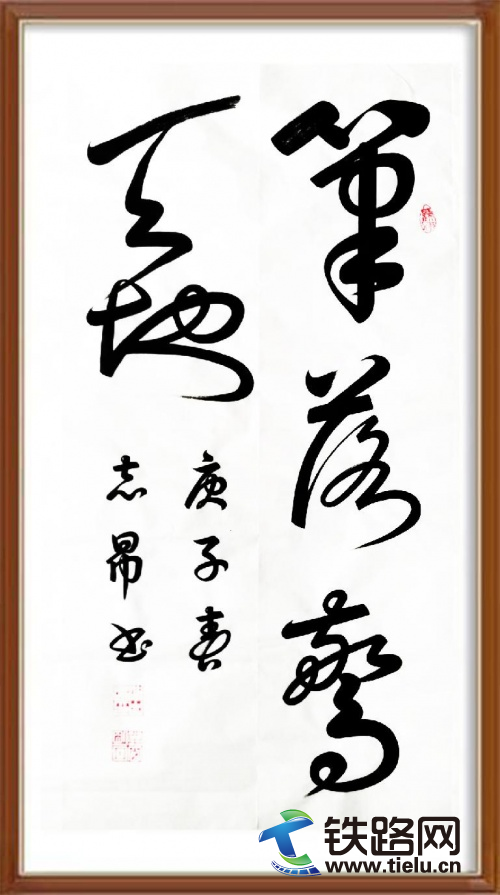 筆落驚
天地
庚子春
志昂书
铁路网
www.tielu.cn